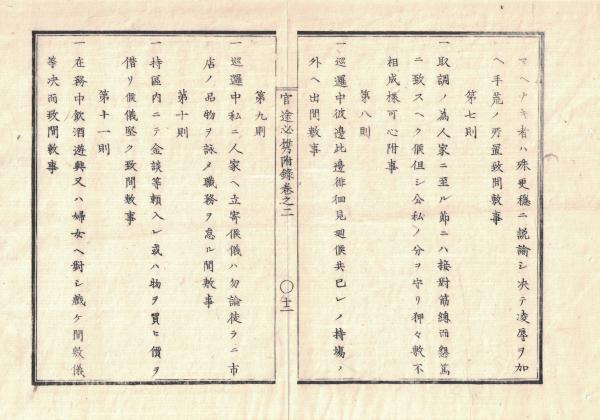 マヘナキ者ハ殊更穏ニ説諭シ决テ凌辱ヲ加
ヘ手荒ノ所置致間敷事
第七則
一取調ノ為人家ニ至ル節ニハ接對筋縝而懇篤
ニ致スヘク候但シ公私ノ分ヲ守リ狎々敷不
相成様可心附事
第八則
一巡邏中彼邊此邊徘徊見廻候共己レノ持塲ノ
外ヘ出間敷事
官途必携附錄卷之二
〇十二
第九則
一巡邏中私ニ人家ヘ立寄候儀ハ勿論徒ラニ市
店ノ品物ヲ詠メ職務ヲ怠ル間敷事
第十則
一持區内ニテ金談等頼入レ或ハ物ヲ買ヒ價ヲ
借リ候儀堅ク致間敷事
第十一則
一在務中飲酒遊興又ハ婦女ヘ對シ戯ケ間敷儀
等决而致間敷事